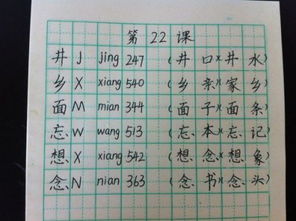 第 22 课
井 J jing 247 (井 口)(井 水)
乡 X xiang 540 (乡 亲)(家 乡)
面 M mian 344 (面 子)(面 条)
忘 W wang 513 (忘 本)(忘 记)
想 X xiang 542 (想 念)(想 象)
念 N nian 363 (念 书)(念 头)